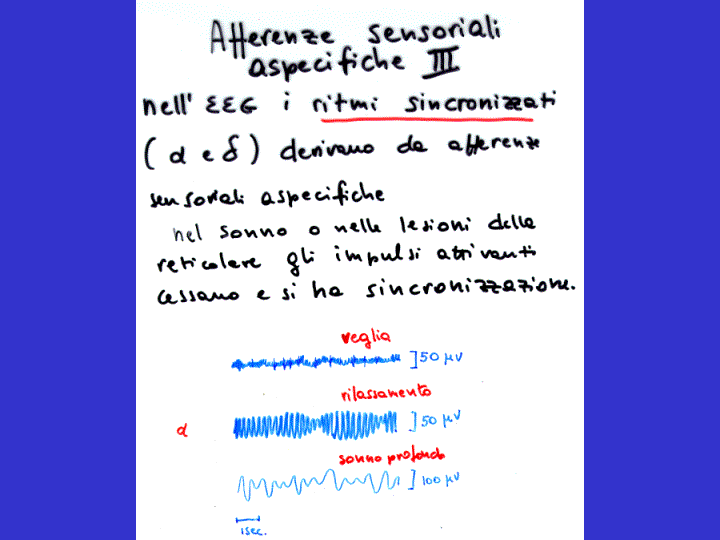 Afferenze sensoriali
aspecifiche III
nell' EEG i ritmi sincronizzati
(α e δ) derivano da afferenze
sensoriali aspecifiche
nel sonno o nelle lesioni della
reticolare gli impulsi attivanti
cessano e si ha sincronizzazione.
veglia
50 μV
rilassamento
α
50 μV
sonno profondo
100 μV
1sec.